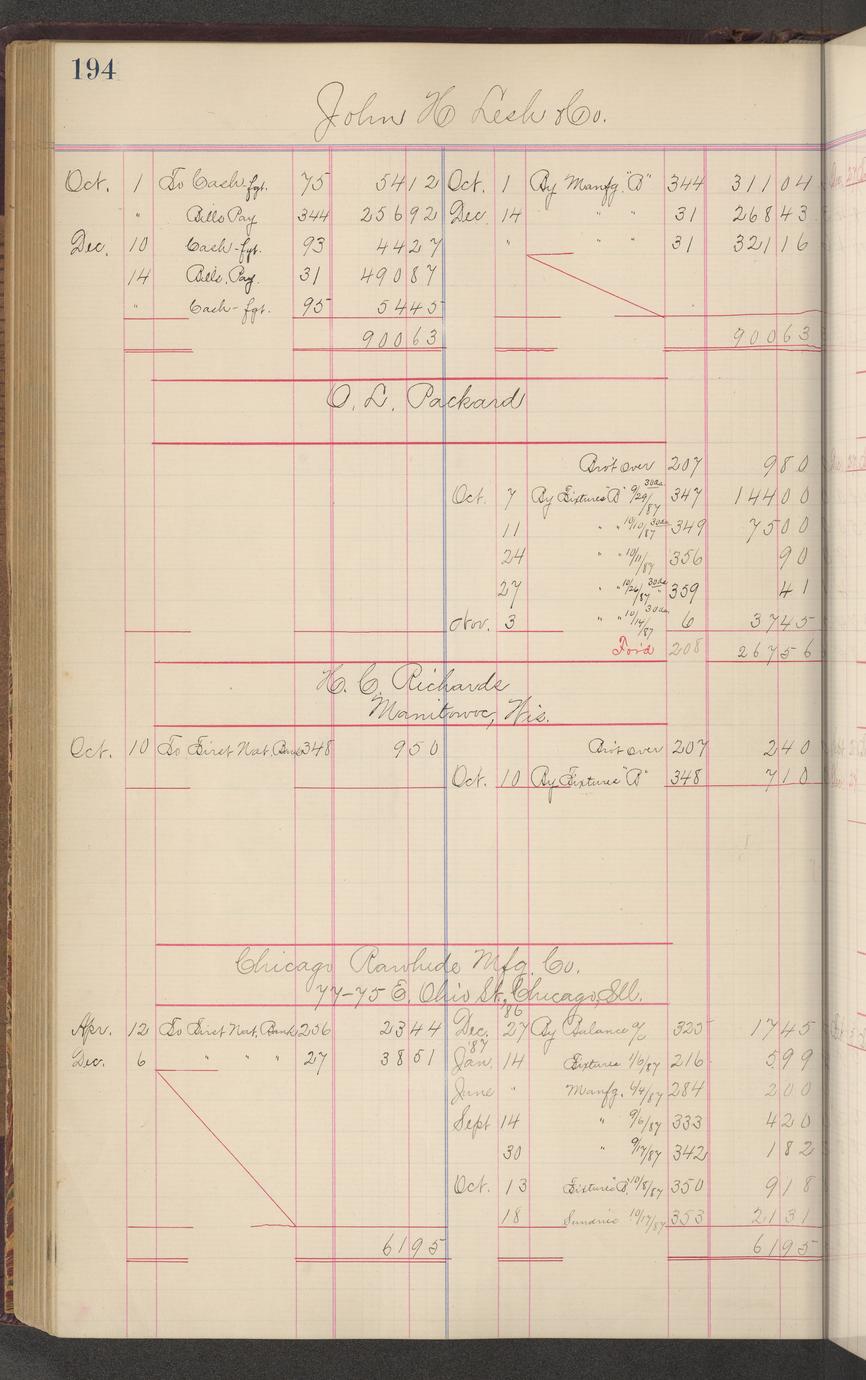 194
John H Lesh & Co.
Oct. 1 To Cash frt. 75 54 12 Oct. 1 By Manfg. "B" 344 311 04
" Bills Pay 344 256 92 Dec. 14 " " 31 268 43
Dec. 10 Cash - frt. 93 44 27 " " " 31 321 16
14 Bills. Pay. 31 490 87
" Cash - frt. 95 54 45
900 63 900 63
O. L. Packard
Bro't over 207 9 80
Oct. 7 By Fixtures "B" 9/29/87 30ds 347 144 00
11 " " 10/10/87 30ds 349 75 00
24 " " 10/11/87 356 90
27 " " 10/26/87 30ds 359 41
Nov. 3 " " 10/14/87 30ds 6 37 45
For'd 208 267 56
H. C. Richards
Manitowoc, Wis.
Oct. 10 To First Nat. Bank 348 9 50 Bro't over 207 2 40
Oct. 10 By Fixtures "B" 348 7 10
Chicago Rawhide Mfg. Co.
77-75 E. Ohio St., Chicago, Ill.
'86
Apr. 12 To First Nat. Bank 256 23 44 Dec. 27 By Balance a/c 325 17 45
'87
Dec. 6 " " " " 27 38 51 Jan. 14 Fixtures 1/6/87 216 5 99
June " Manfg. 4/4/87 284 2 00
Sept 14 " 9/6/87 333 4 20
30 " 9/17/87 342 1 82
Oct. 13 Fixtures "B" 10/8/87 350 9 18
18 Sundries 10/17/87 353 21 31
61 95 61 95